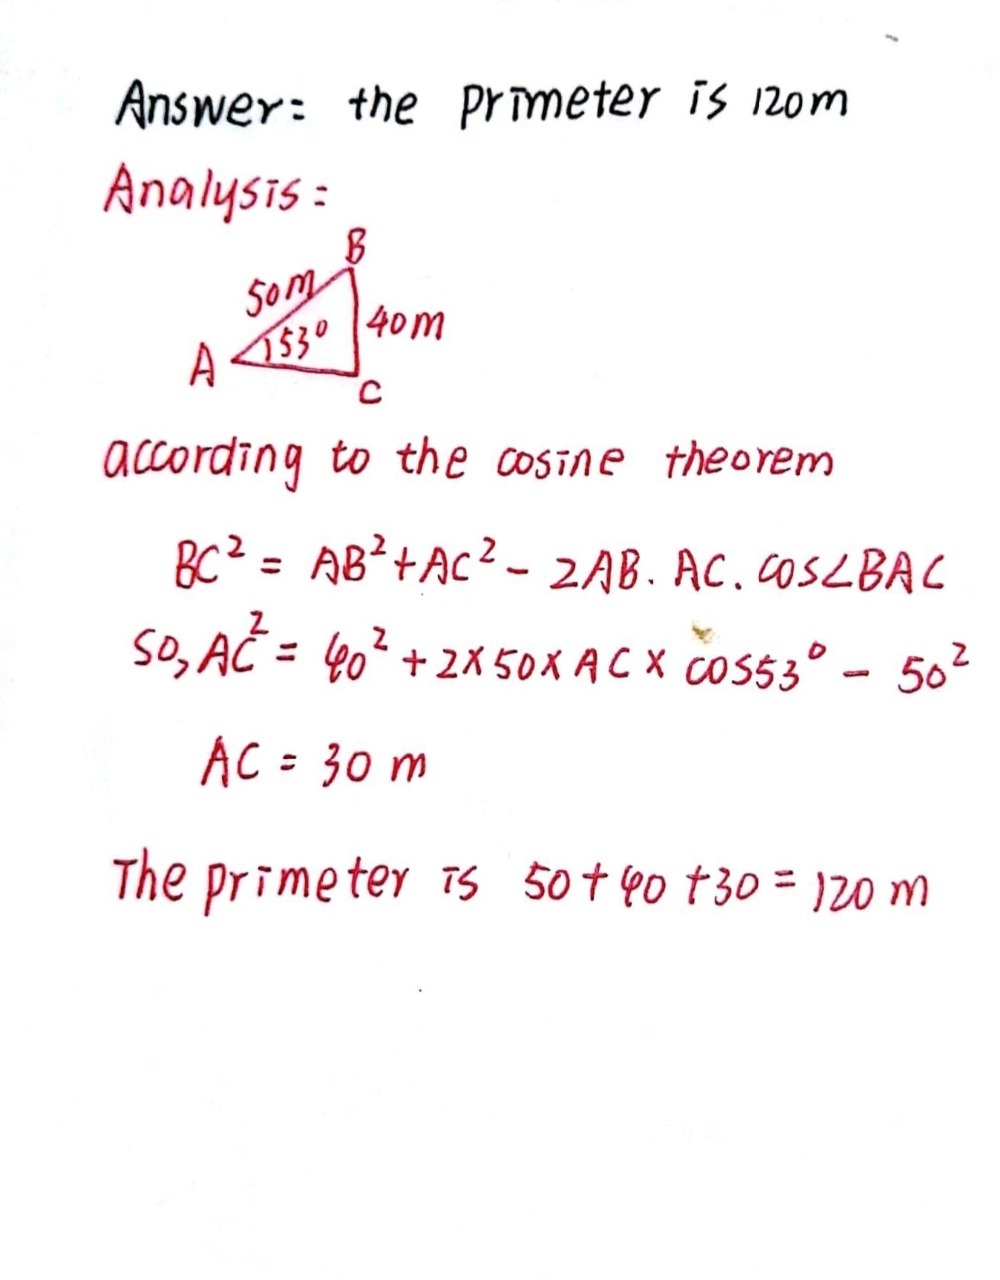 Answer: the primeter is 120m
Analysis:
B
50m
53°
40m
A
C
according to the cosine theorem
BC² = AB²+AC² - 2AB. AC. cos∠BAC
so, AC² = 40² + 2×50×AC× cos53° - 50²
AC = 30 m
The primeter is 50+40+30=120 m